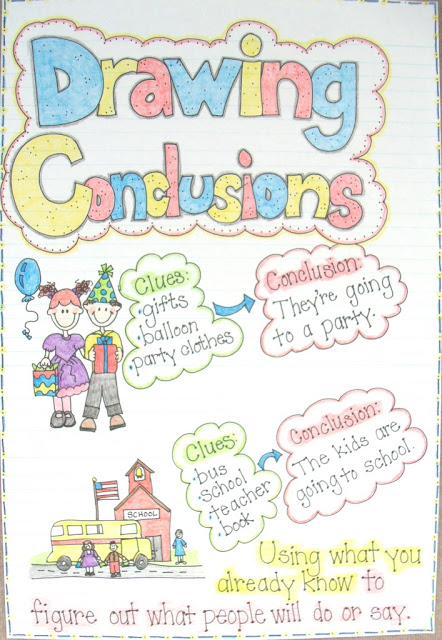 Drawing
Conclusions
Clues:
• gifts
• balloon
• party clothes
Conclusion:
They're going
to a party.
SCHOOL
Clues:
• bus
• school
• teacher
• book
Conclusion:
The kids are
going to school.
Using what you
already know to
figure out what people will do or say.